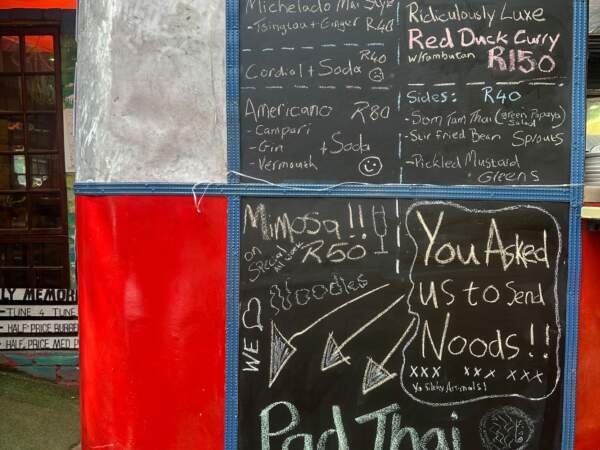 Michelado Mai Style
-Tsingtao + Ginger R40
Cordial + Soda R40
Americano R80
-Campari
-Gin + Soda
-Vermouth
Ridiculously Luxe
Red Duck Curry
w/rambutan R150
Sides: R40
-Som Tam Thai (Green Papaya Salad)
-Stir Fried Bean Sprouts
-Pickled Mustard Greens
Mimosa!!
on Special R50
WE
Noodles
You Asked
us to Send
Noods!!
xxx xxx xxx
Ya Silly Animals!
Pad Thai
LY MEMOR
-TUNE 4 TUNE
-HALF PRICE BURGE
-HALF PRICE MED P